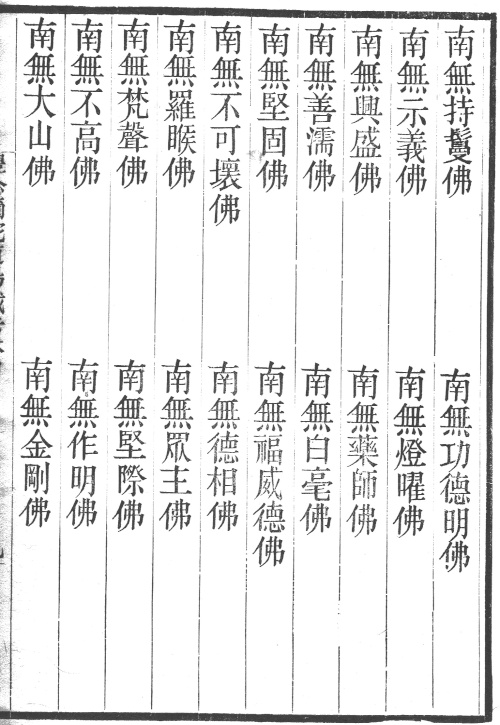 南無持鬘佛　南無功德明佛
南無示義佛　南無燈曜佛
南無興盛佛　南無藥師佛
南無善濡佛　南無白毫佛
南無堅固佛　南無福威德佛
南無不可壞佛　南無德相佛
南無羅睺佛　南無眾主佛
南無梵聲佛　南無堅際佛
南無不高佛　南無作明佛
南無大山佛　南無金剛佛